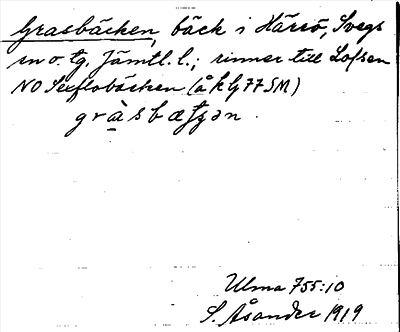 Grasbäcken, bäck i Härsö, Svegs
sn o. tg. Jämtl. l.; rinner till Lofsen
NO Sexflobäcken (å k G 77 SM)
gràsbætʃən.
Ulma 755:10
S. Åsander 1919